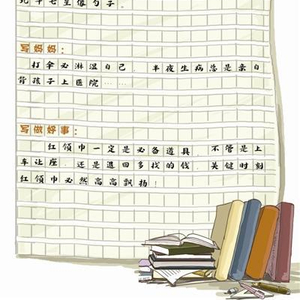 北斗七星像勺子。
写妈妈：
打伞必淋湿自己 半夜生病总是亲自
背孩子上医院……
写做好事：
红领巾一定是必备道具 不管是上
车让座 还是追回多找的钱 关键时刻
红领巾必然高高飘扬！